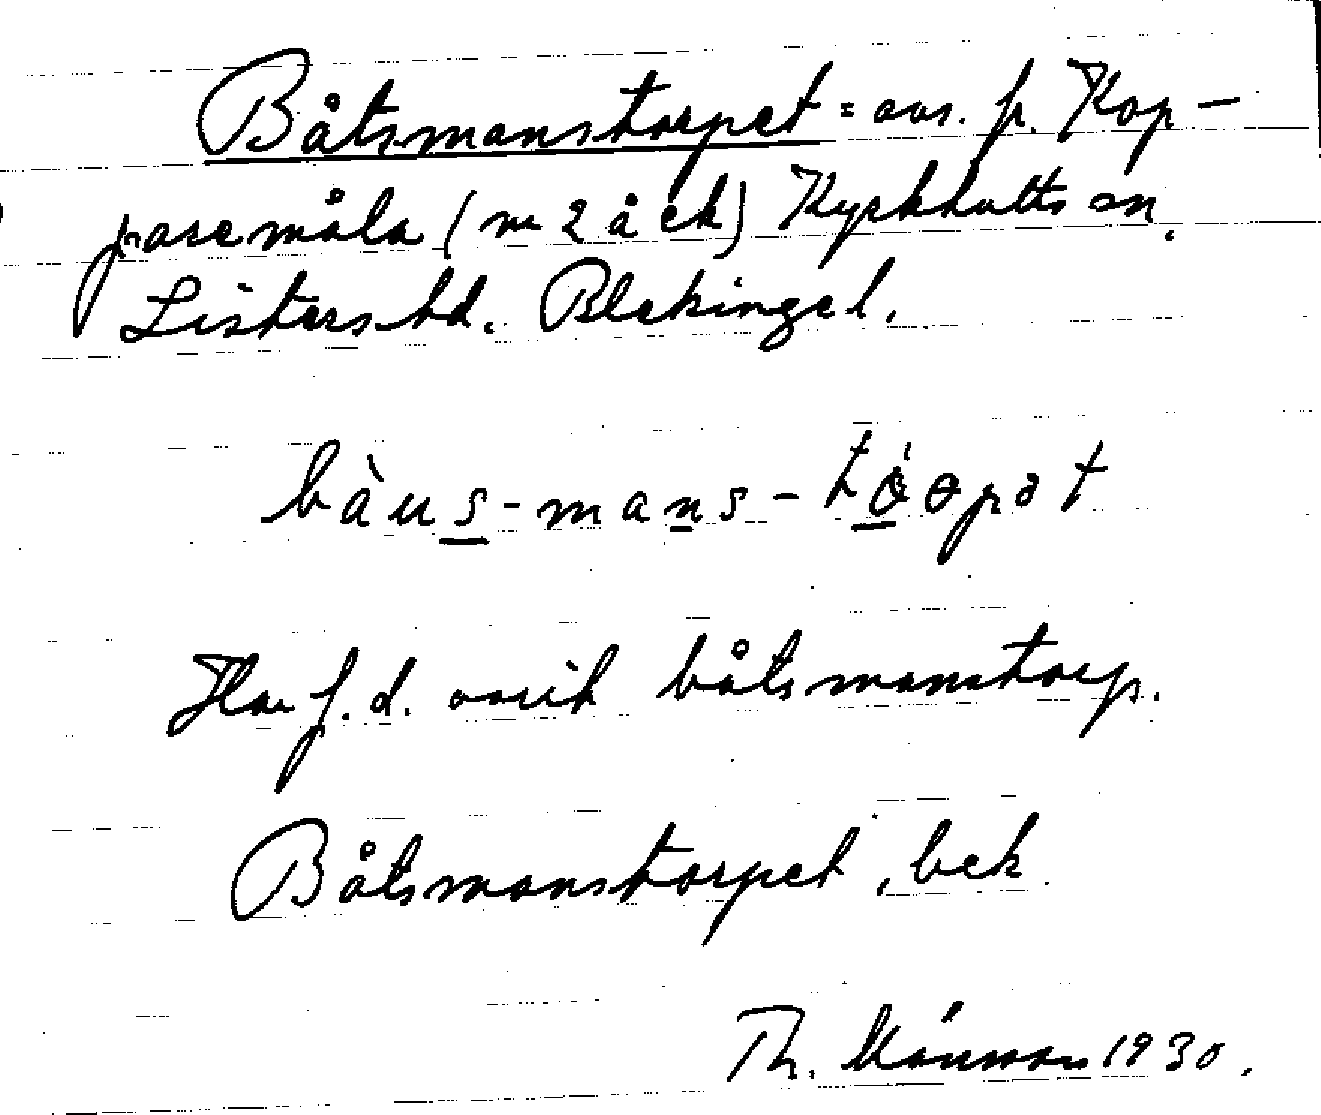 Båtsmanstorpet = avs. p. Kop-
paremåla (nr 2 å ek) Kyrkhults sn.
Listers hd. Blekinge l.
bàus-mans-tóopət
Har f.d. varit båtsmanstorp.
Båtsmanstorpet, bek
Th. 1930.